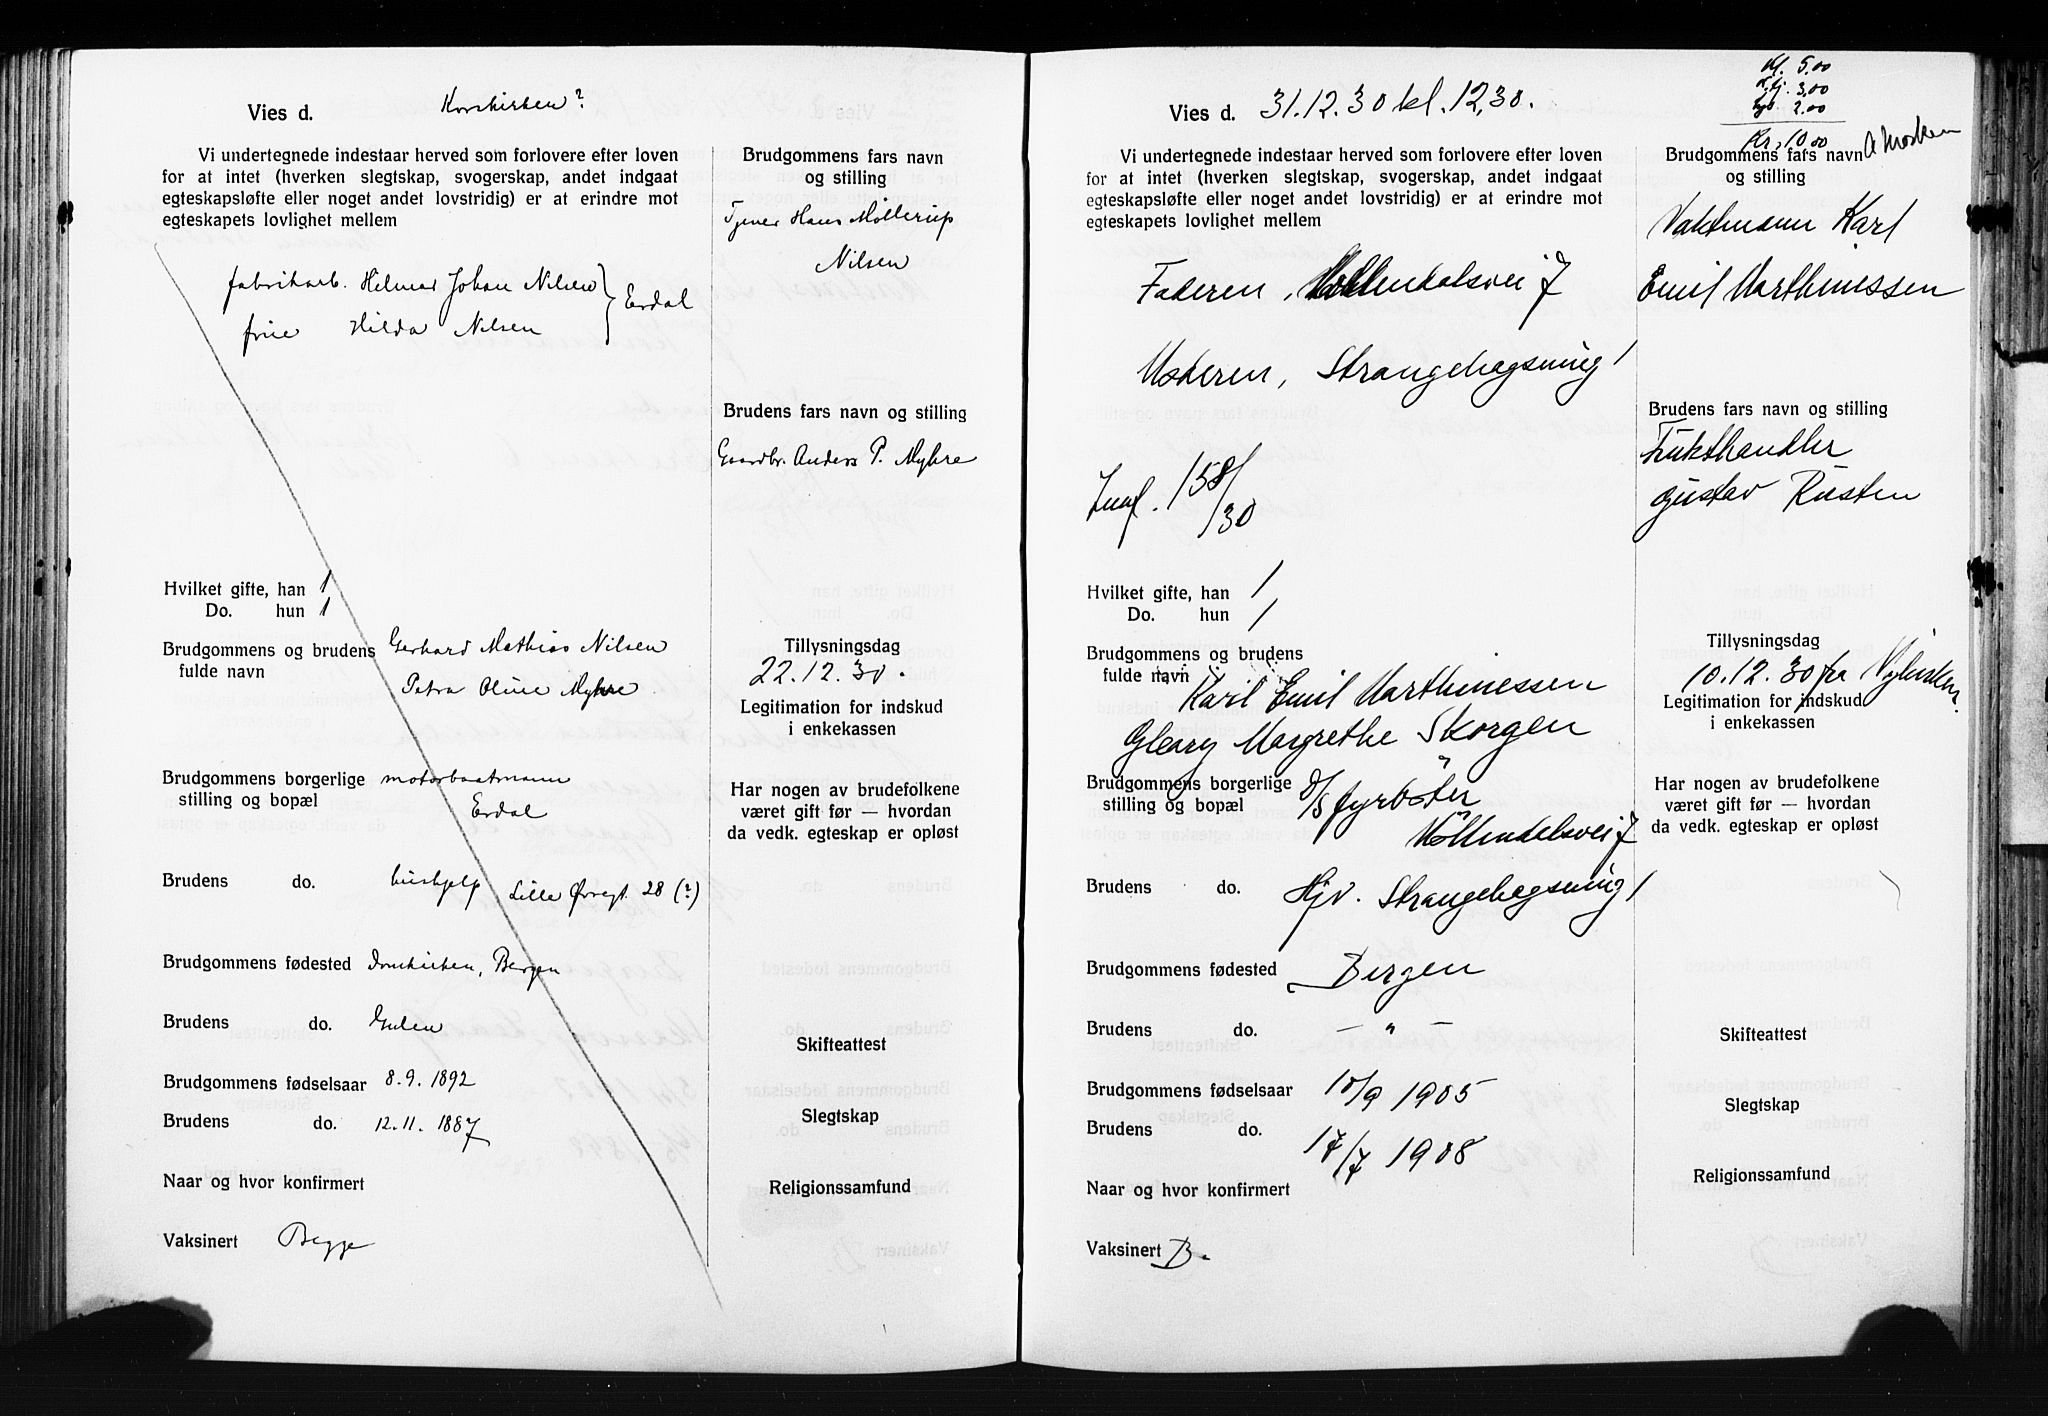 Vies d. Korskirken?
Vi undertegnede indestaar herved som forlovere efter loven
for at intet (hverken slegtskap, svogerskap, andet indgaat
egteskapsløfte eller noget andet lovstridig) er at erindre mot
egteskapets lovlighet mellem
fabrikarb. Helmar Johan Nilsen } Erdal
frue Hilda Nilsen
Brudgommens fars navn
og stilling
Tjener Hans Møllerup
Nilsen
Brudens fars navn og stilling
Gaardbr. Anders P. Myhre
Hvilket gifte, han 1
Do. hun 1
Brudgommens og brudens Gerhard Mathias Nilsen
fulde navn Petra Oline Myhre
Tillysningsdag
22.12.30.
Legitimation for indskud
i enkekassen
Brudgommens borgerlige motorbaatmann
stilling og bopæl Erdal
Har nogen av brudefolkene
været gift før — hvordan
da vedk. egteskap er opløst
Brudens do. hushjelp Lille Øvregt. 28 (?)
Brudgommens fødested Domkirken, Bergen
Brudens do. Gulen
Skifteattest
Brudgommens fødselsaar 8.9.1892
Brudens do. 12.11.1887
Slegtskap
Naar og hvor konfirmert
Religionssamfund
Vaksinert Begge
Vies d. 31.12.30 kl. 12,30.
5.00
3.00
2.00
Kr. 10.00
Vi undertegnede indestaar herved som forlovere efter loven
for at intet (hverken slegtskap, svogerskap, andet indgaat
egteskapsløfte eller noget andet lovstridig) er at erindre mot
egteskapets lovlighet mellem
Faderen, Møllendalsvei 7
Moderen, Strangehagsmug 1
158/30
Brudgommens fars navn
og stilling
Vaktmann Karl
Emil Marthinessen
Brudens fars navn og stilling
Frukthandler
Gustav Rusten
Hvilket gifte, han 1
Do. hun 1
Brudgommens og brudens
fulde navn Karl Emil Marthinessen
Gleary Margrethe Skorgen
Tillysningsdag
10.12.30 fra
Legitimation for indskud
i enkekassen
Brudgommens borgerlige D/S fyrbøter
stilling og bopæl Møllendalsvei 7
Har nogen av brudefolkene
været gift før — hvordan
da vedk. egteskap er opløst
Brudens do. Hjv. Strangehagsmug 1
Brudgommens fødested Bergen
Brudens do. — " —
Skifteattest
Brudgommens fødselsaar 10/9 1905
Slegtskap
Brudens do. 17/7 1908
Religionssamfund
Naar og hvor konfirmert
Vaksinert B.